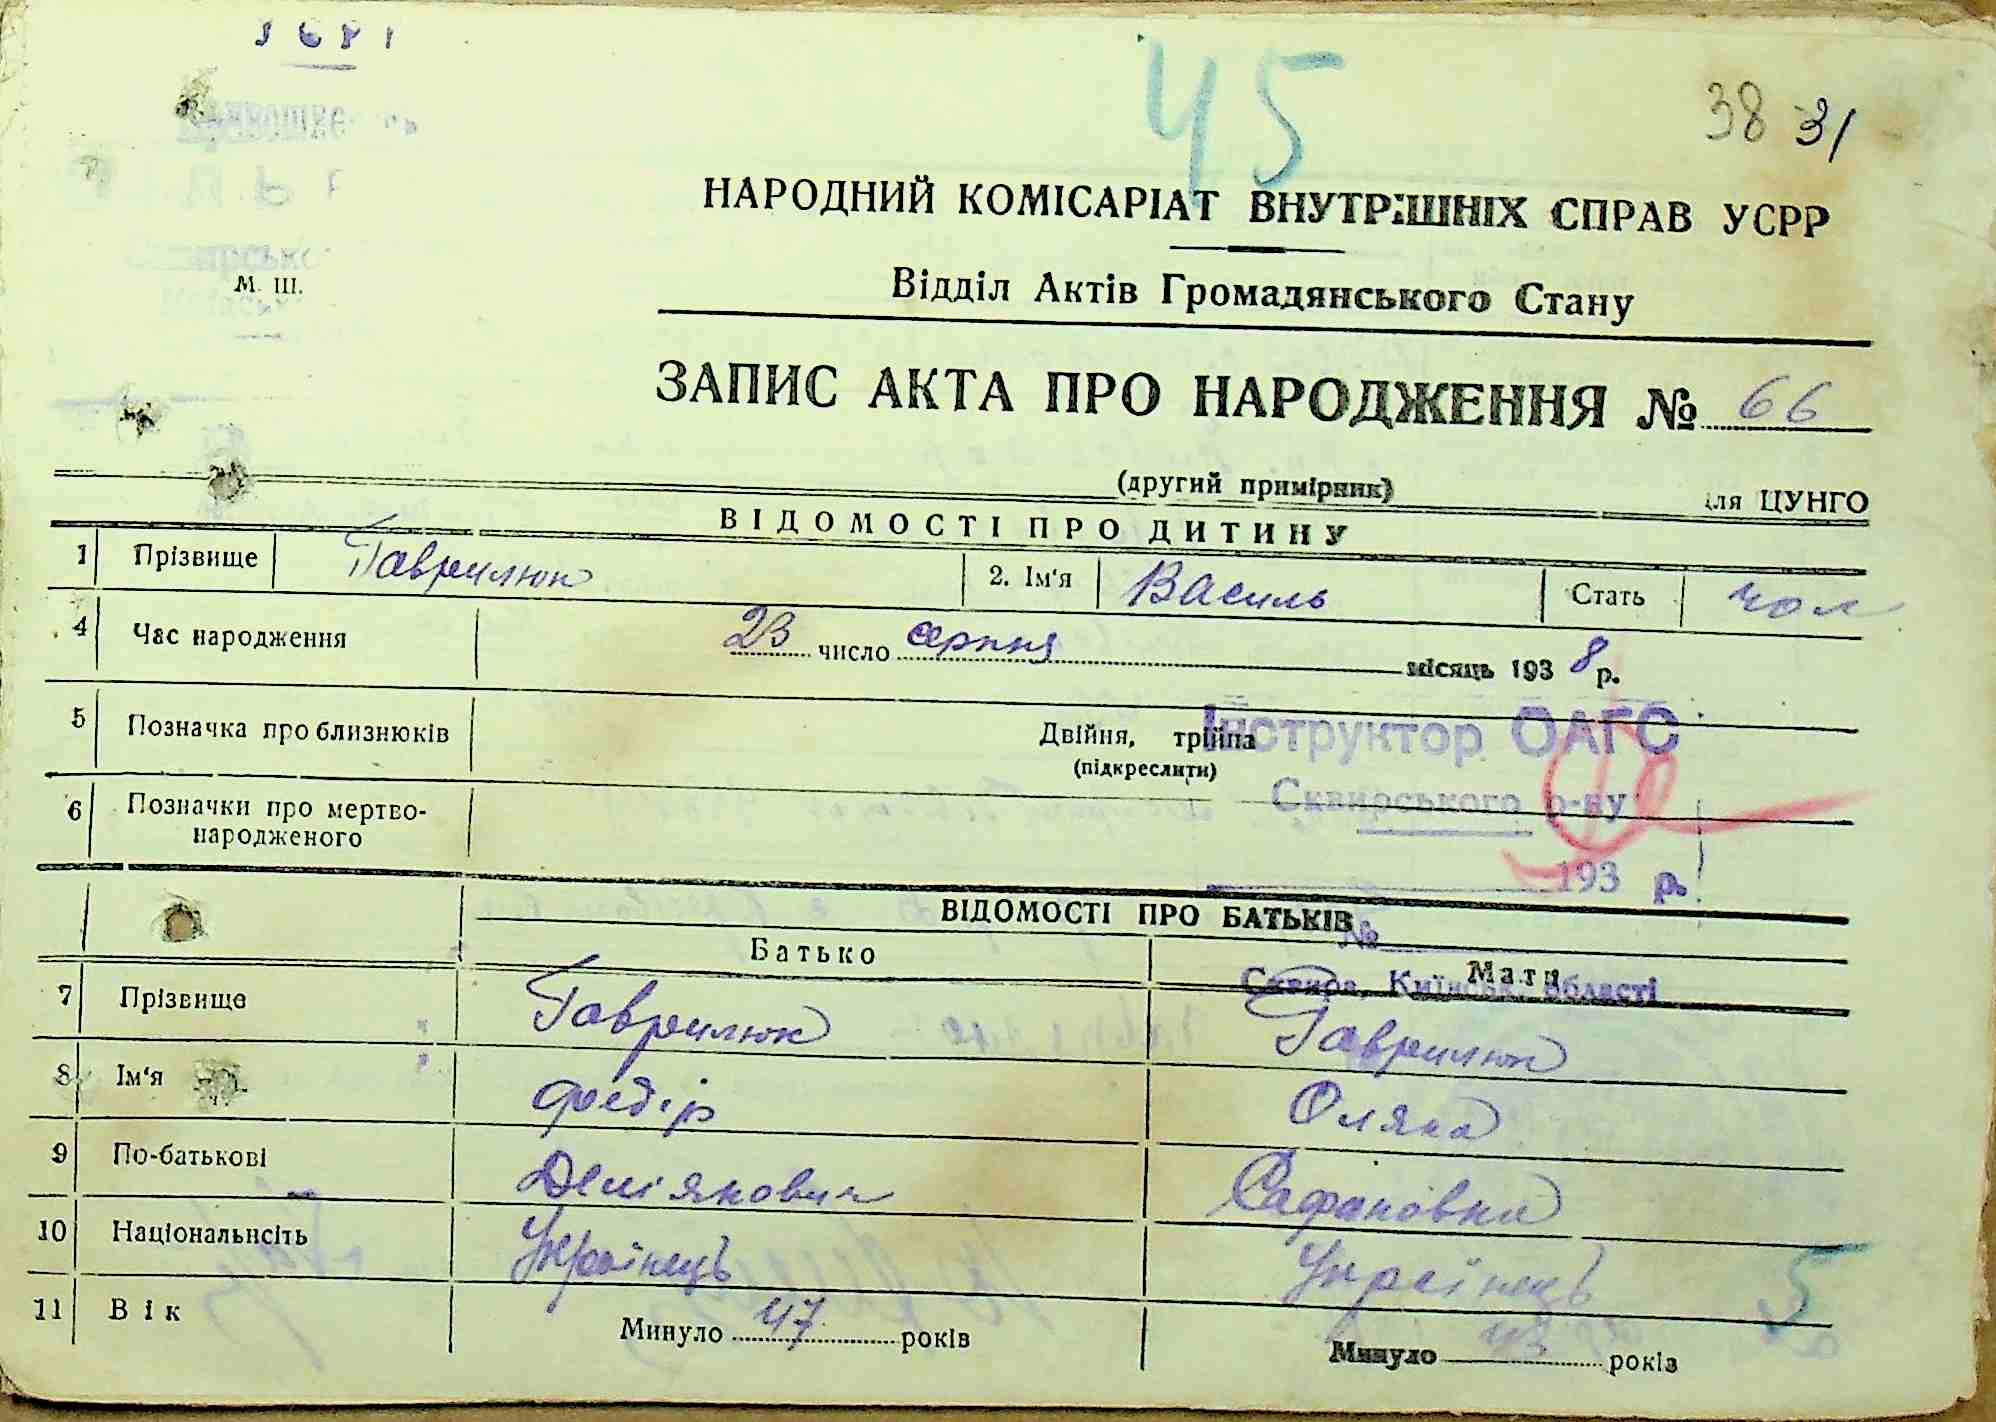 45
38 31
НАРОДНИЙ КОМІСАРІАТ ВНУТРІШНІХ СПРАВ УСРР
М. Ш.
Відділ Актів Громадянського Стану
ЗАПИС АКТА ПРО НАРОДЖЕННЯ № 66
(другий примірник) для ЦУНГО
ВІДОМОСТІ ПРО ДИТИНУ
1 Прізвище Гаврилюк 2. Ім'я Василь Стать чол
4 Час народження 23 число серпня місяць 1938 р.
5 Позначка про близнюків Двійня, трійня
(підкреслити)
Інструктор ОАГС
Сквирського р-ну
6 Позначки про мертво-
народженого
193 р.
ВІДОМОСТІ ПРО БАТЬКІВ
№
Батько Мати
Сквира, Київськ. області
7 Прізвище Гаврилюк Гаврилюк
8 Ім'я Федір Оляна
9 По-батькові Демʼянович Сафоновна
10 Національнсіть Українець Українець
11 Вік Минуло 47 років Минуло 43 років
5